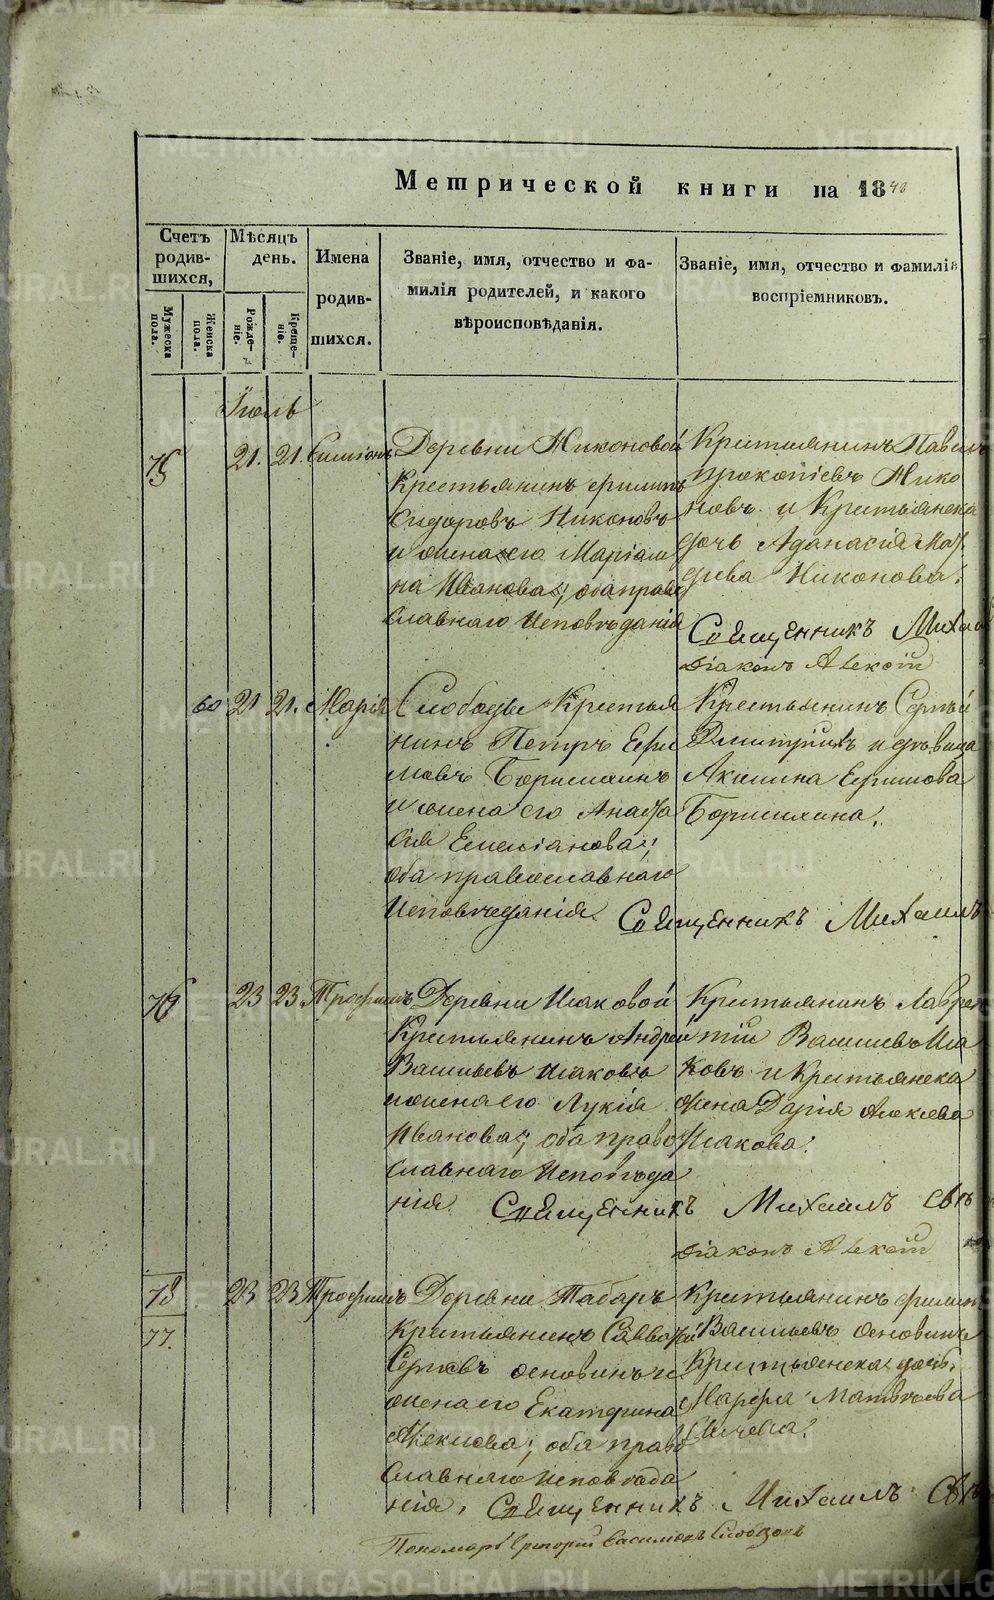 Метрической книги на 1848
Счетъ родив-шихся,
Мужеска пола.
Женска пола.
Мѣсяцъ день.
Рожде-ніе.
Креще-ніе.
Имена
родив-
шихся.
Званіе, имя, отчество и фа-
милія родителей, и какого
вѣроисповѣданія.
Званіе, имя, отчество и фамилія
воспріемниковъ.
Іюль
75 21. 21. Симеонъ
Деревни Никоновой
Крестьянинъ Филипъ
Сидоровъ Никоновъ
и жена его Маріам
на Иванова; оба право
славнаго Исповѣданія
Крестьянинъ Павелъ
Прокопіевъ Нико
новъ и Крестьянска
дочь Афанасія
Никонова.
Священникъ Михаи
Діаконъ Алексій
60 21 21. Марія
Слободы Крестья
нинъ Петръ Ефи
мовъ Боришихинъ
и жена его Анаста
сія Емеліанова;
оба православнаго
Исповѣданія.
Крестьянинъ Сергѣй
Дмитріевъ и дѣвица
Акилина Ефимова
Боришихина.
Священникъ Михаилъ
76 23 23. Трофимъ
Деревни Исаковой
Крестьянинъ Андрей
Васильевъ Исаковъ
и жена его Лукія
Иванова; оба право
славнаго Исповѣда
нія.
Крестьянинъ Лаврен
тій Васильевъ Иса
ковъ и Крестьянска
жена Дарія Алексѣева
Исакова.
Священникъ Михаилъ Свѣ
Діаконъ Алексій
78 23 23 Трофимъ
77.
Деревни Табаръ
Крестьянинъ Савватій
Сергѣевъ Основинъ и
жена его Екатерина
Алексѣева; оба право
славнаго Исповѣда
нія.
Крестьянинъ Филипъ
Васильевъ Основинъ
Крестьянска дочь
Марфа Матвѣева
Священникъ Михаилъ Свѣ
Пономарь Григорій Васильевъ Словцовъ
METRIKI.GASO-URAL.RU